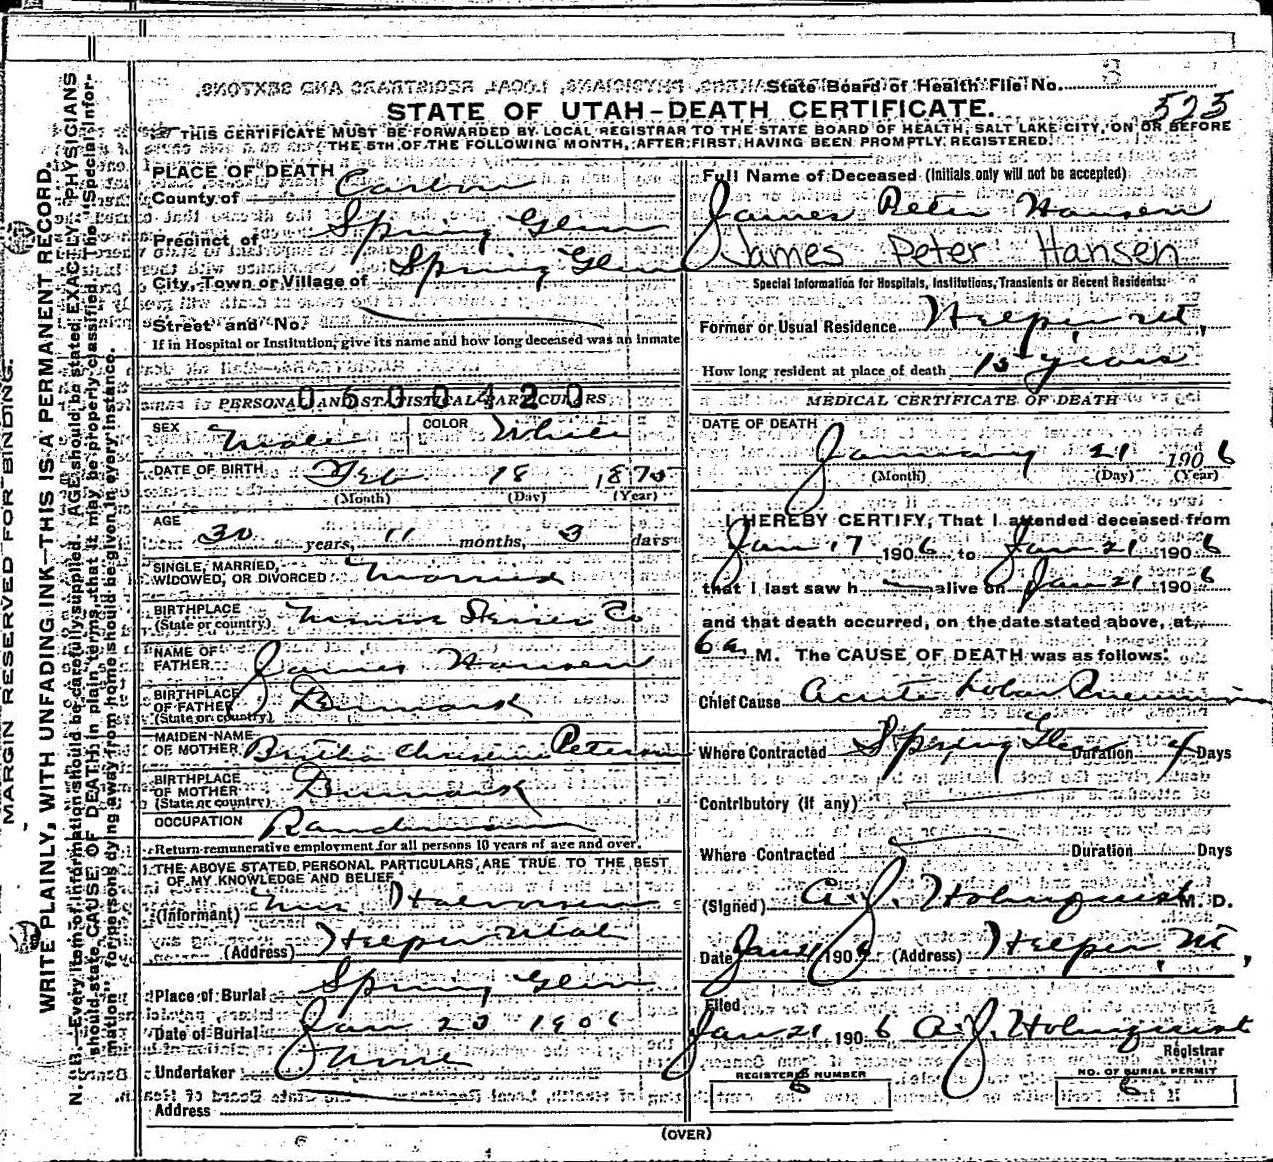 State Board of Health File No. 3
STATE OF UTAH-DEATH CERTIFICATE.
523
THIS CERTIFICATE MUST BE FORWARDED BY LOCAL REGISTRAR TO THE STATE BOARD OF HEALTH, SALT LAKE CITY, ON OR BEFORE
THE 5TH OF THE FOLLOWING MONTH, AFTER FIRST HAVING BEEN PROMPTLY REGISTERED.
MARGIN RESERVED FOR BINDING.
WRITE PLAINLY, WITH UNFADING INK—THIS IS A PERMANENT RECORD.
N. B.—Every item of information should be carefully supplied. AGE should be stated EXACTLY. PHYSICIANS
should state CAUSE OF DEATH in plain terms, that it may be properly classified. The "Special Infor-
mation" for persons dying away from home should be given in every instance.
PLACE OF DEATH
County of Carbon
Precinct of Spring Glen
City, Town or Village of Spring Glen
Street and No.
If in Hospital or Institution, give its name and how long deceased was an inmate
0600420
PERSONAL AND STATISTICAL PARTICULARS
SEX Male COLOR White
DATE OF BIRTH Feb 18 1875
(Month) (Day) (Year)
AGE
30 years, 11 months, 3 days
SINGLE, MARRIED,
WIDOWED, OR DIVORCED Married
BIRTHPLACE
(State or country) Sevier Co
NAME OF
FATHER James Hansen
BIRTHPLACE
OF FATHER
(State or country) Denmark
MAIDEN NAME
OF MOTHER Christine
BIRTHPLACE
OF MOTHER
(State or country) Denmark
OCCUPATION
Return remunerative employment for all persons 10 years of age and over.
THE ABOVE STATED PERSONAL PARTICULARS ARE TRUE TO THE BEST
OF MY KNOWLEDGE AND BELIEF
(Informant) Halvorsen
(Address) Helper Utah
Place of Burial Spring Glen
Date of Burial Jan 23 1906
Undertaker
Address
Full Name of Deceased (Initials only will not be accepted)
James Peter Hansen
James Peter Hansen
Special Information for Hospitals, Institutions, Transients or Recent Residents:
Former or Usual Residence Helper, Ut,
How long resident at place of death 15 years
MEDICAL CERTIFICATE OF DEATH
DATE OF DEATH
January 21 1906
(Month) (Day) (Year)
I HEREBY CERTIFY, That I attended deceased from
Jan 17 1906 to Jan 21 1906
that I last saw h alive on Jan 21 1906
and that death occurred, on the date stated above, at
6 a. M. The CAUSE OF DEATH was as follows:
Chief Cause Acute Lobar Pneumonia
Where Contracted Spring Glen Duration 4 Days
Contributory (If any)
Where Contracted Duration Days
(Signed) A. J. Holmquist M. D.
Date Jan 21 1906 (Address) Helper, Ut,
Filed
Jan 21 1906 A. J. Holmquist
Registrar
REGISTERED NUMBER
6
NO. OF BURIAL PERMIT
6
(OVER)
6